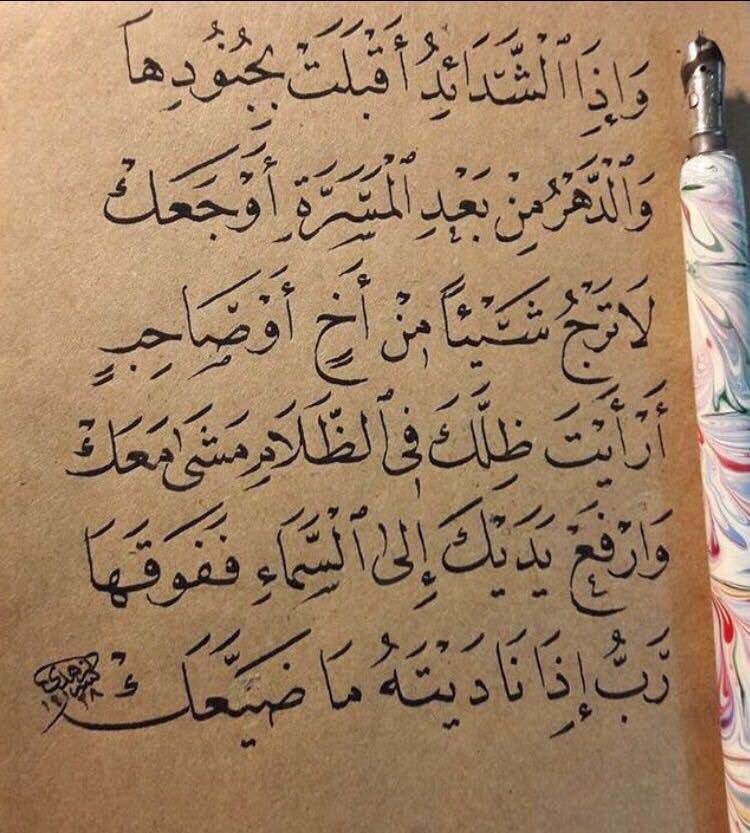 وَإِذَا ٱلْشَّدَائِدُ أَقْبَلَتْ بِجُنُودِهَا
وَٱلْدَّهْرُ مِنْ بَعْدِ ٱلْمَسَرَّةِ أَوْجَعَكْ
لَا تَرْجُ شَيْئاً مِنْ أَخٍ أَوْ صَاحِبٍ
أَرَأَيْتَ ظِلَّكَ فِي ٱلظَّلَامِ مَشَىٰ مَعَكْ
وَارْفَعْ يَدَيْكَ إِلىٰ ٱلْسَّمَاءِ فَفَوْقَهَا
رَبُّ إِذَا نَادَيْتَهُ مَا ضَيَّعَكْ